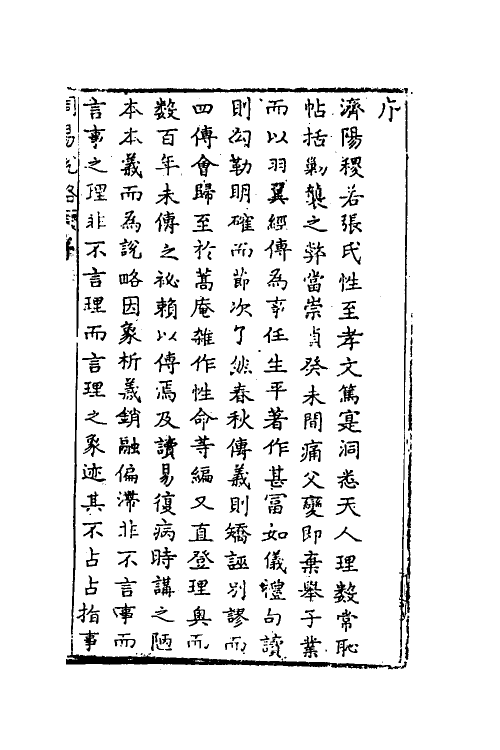 序
濟陽稷若張氏性至孝文篤寔洞悉天人理數常恥
帖括剿襲之弊當崇貞癸未間痛父變即棄舉子業
而以羽翼經傳為事任生平著作甚冨如儀禮句讀
則勾勒明確而節次了然春秋傳義則矯誣別謬而
四傳會歸至於蒿庵雜作性命等編又直登理奥而
数百年未傳之祕賴以傳焉及讀易復病時講之陋
本本義而為說略因象析義銷融偏滯非不言事而
言事之理非不言理而言理之象迹其不占占指事
周易說略 序